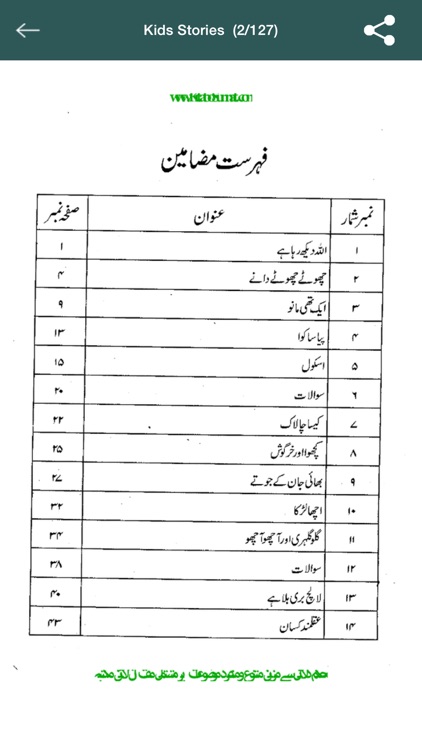 Kids Stories (2/127)
فہرست مضامین
نمبر شمار عنوان صفحہ نمبر
۱ اللہ دیکھ رہا ہے ۱
۲ چھوٹے چھوٹے دانے ۴
۳ ایک تھی مانو ۹
۴ پیاسا کوا ۱۳
۵ اسکول ۱۵
۶ سوالات ۲۰
۷ کیسا چالاک ۲۲
۸ کچھوا اور خرگوش ۲۵
۹ بھائی جان کے جوتے ۲۷
۱۰ اچھا لڑکا ۳۲
۱۱ گلو گلہری اور آچھو آچھو ۳۴
۱۲ سوالات ۳۸
۱۳ لالچ بری بلا ہے ۴۰
۱۴ عقلمند کسان ۴۳